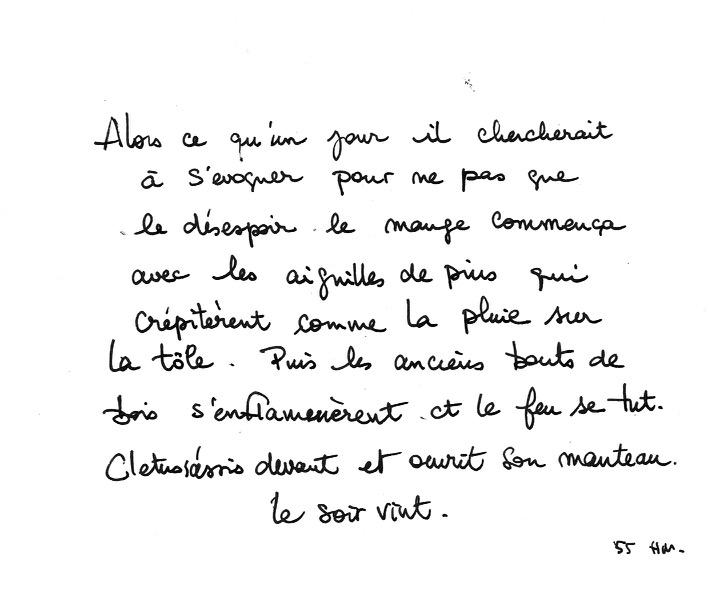 Alors ce qu'un jour il chercherait
à s'évoquer pour ne pas que
le désespoir le mange commença
avec les aiguilles de pins qui
crépitèrent comme la pluie sur
la tôle. Puis les anciens bouts de
bois s'enflamenèrent et le feu se tut.
Cletus s'assis devant et ouvrit son manteau.
le soir vint.
55 HM.